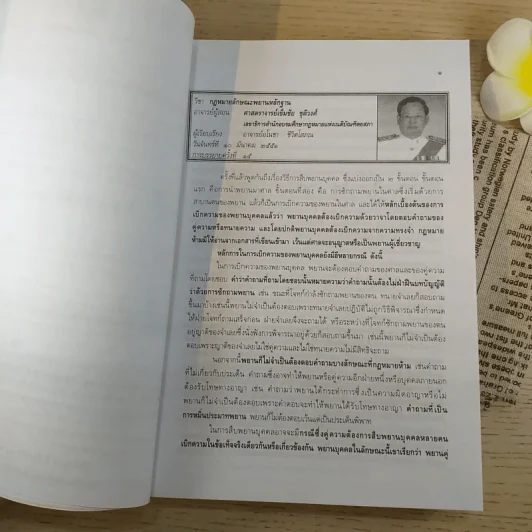 ๑
วิชา กฎหมายลักษณะพยานหลักฐาน
อาจารย์ผู้สอน ศาสตราจารย์เข็มชัย ชุติวงศ์
เลขาธิการสำนักอบรมศึกษากฎหมายแห่งเนติบัณฑิตยสภา
ผู้เรียบเรียง อาจารย์อโนชา ชีวิตโสภณ
วันจันทร์ที่ ๑๐ มีนาคม ๒๕๕๑
การบรรยายครั้งที่ ๑๕
ครั้งที่แล้วพูดกันถึงเรื่องวิธีการสืบพยานบุคคล ซึ่งแบ่งออกเป็น ๒ ขั้นตอน ขั้นตอน
แรก คือการนำพยานมาศาล ขั้นตอนที่สอง คือ การซักถามพยานในศาลซึ่งเริ่มด้วยการ
สาบานตนของพยาน แล้วก็เป็นการเบิกความของพยานในศาล และได้ให้หลักเบื้องต้นของการ
เบิกความของพยานบุคคลแล้วว่า พยานบุคคลต้องเบิกความด้วยวาจาโดยตอบคำถามของ
คู่ความหรือทนายความ และโดยปกติพยานบุคคลต้องเบิกความจากความทรงจำ กฎหมาย
ห้ามมิให้อ่านจากเอกสารที่เขียนเข้ามา เว้นแต่ศาลจะอนุญาตหรือเป็นพยานผู้เชี่ยวชาญ
หลักการในการเบิกความของพยานบุคคลยังมีอีกหลายกรณี ดังนี้
ในการเบิกความของพยานบุคคล พยานจะต้องตอบคำถามของศาลและของคู่ความ
ที่ถามโดยชอบ คำว่าคำถามที่ถามโดยชอบนั้นหมายความว่าคำถามนั้นต้องไม่ฝ่าฝืนบทบัญญัติ
ว่าด้วยการซักถามพยาน เช่น ขณะที่โจทก์กำลังซักถามพยานของตน ทนายจำเลยก็สอบถาม
ขึ้นมาบ้างเช่นนี้พยานไม่จำเป็นต้องตอบเพราะทนายจำเลยปฏิบัติไม่ถูกวิธีพิจารณาซึ่งกำหนด
ให้ฝ่ายโจทก์ถามเสร็จก่อน ฝ่ายจำเลยจึงจะถามได้ หรือระหว่างที่โจทก์ซักถามพยานของตน
อยู่ญาติของจำเลยซึ่งนั่งฟังการพิจารณาอยู่ด้วยก็สอบถามขึ้นมา เช่นนี้พยานก็ไม่จำเป็นต้อง
ตอบเพราะญาติของจำเลยไม่ใช่คู่ความและไม่ใช่ทนายความไม่มีสิทธิจะถาม
นอกจากนี้พยานก็ไม่จำเป็นต้องตอบคำถามบางลักษณะที่กฎหมายห้าม เช่นคำถาม
ที่ไม่เกี่ยวกับประเด็น คำถามซึ่งอาจทำให้พยานหรือคู่ความอีกฝ่ายหนึ่งหรือบุคคลภายนอก
ต้องรับโทษทางอาญา เช่น คำถามว่าพยานได้กระทำการซึ่งเป็นความผิดอาญาหรือไม่
พยานก็ไม่จำเป็นต้องตอบเพราะคำตอบจะทำให้พยานได้รับโทษทางอาญา คำถามที่เป็น
การหมิ่นประมาทพยาน พยานก็ไม่ต้องตอบเว้นแต่เป็นประเด็นพิพาท
ในการสืบพยานบุคคลอาจจะมีกรณีซึ่งคู่ความต้องการสืบพยานบุคคลหลายคน
เบิกความในข้อเท็จจริงเดียวกันหรือเกี่ยวข้องกัน พยานบุคคลในลักษณะนี้เขาเรียกว่า พยานคู่